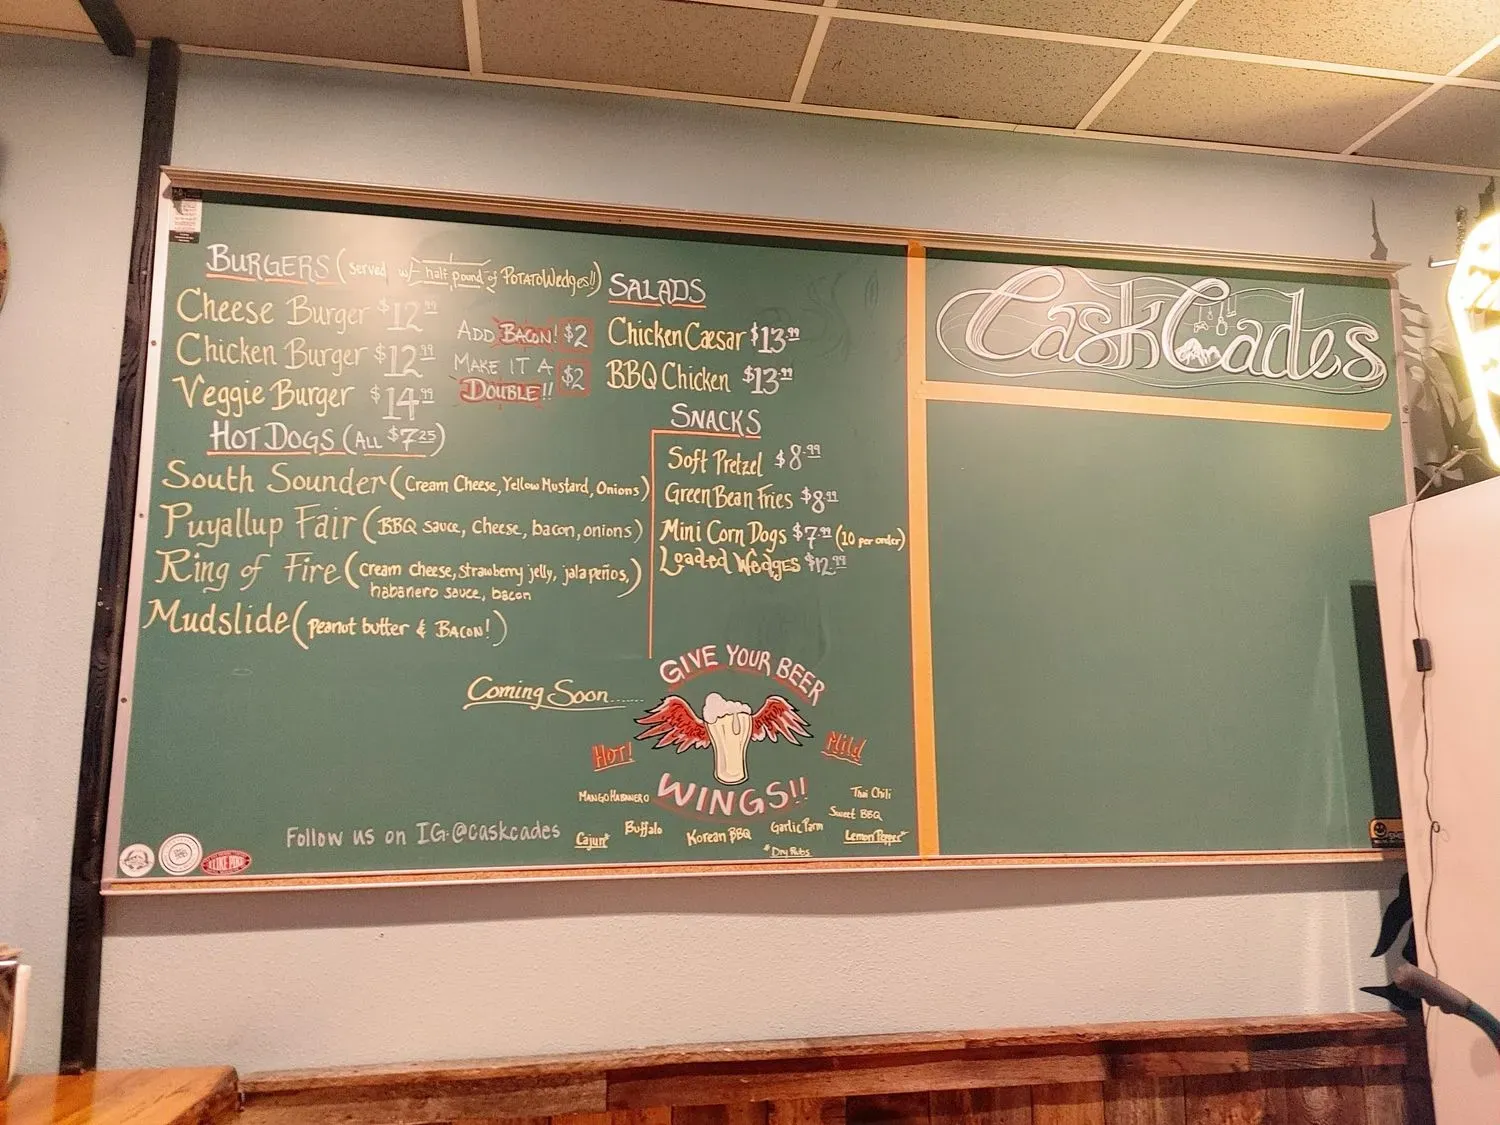 BURGERS (served w/ half pound of POTATO Wedges!!)
Cheese Burger $12.99
Chicken Burger $12.99
Veggie Burger $14.99
ADD BACON! $2
MAKE IT A DOUBLE!! $2
HOT DOGS (ALL $7.25)
South Sounder (Cream Cheese, Yellow Mustard, Onions)
Puyallup Fair (BBQ sauce, cheese, bacon, onions)
Ring of Fire (cream cheese, strawberry jelly, jalapeños,
habanero sauce, bacon)
Mudslide (peanut butter & BACON!)
SALADS
Chicken Caesar $13.99
BBQ Chicken $13.99
SNACKS
Soft Pretzel $8.99
Green Bean Fries $8.99
Mini Corn Dogs $7.99 (10 per order)
Loaded Wedges $12.99
Coming Soon......
GIVE YOUR BEER
WINGS!!
HOT!
Mild
MANGO HABANERO
Cajun*
Buffalo
Korean BBQ
Garlic Parm
Thai Chili
Sweet BBQ
Lemon Pepper*
*Dry Rubs
Follow us on IG:@caskcades
I LIKE PIKE
CaskCades